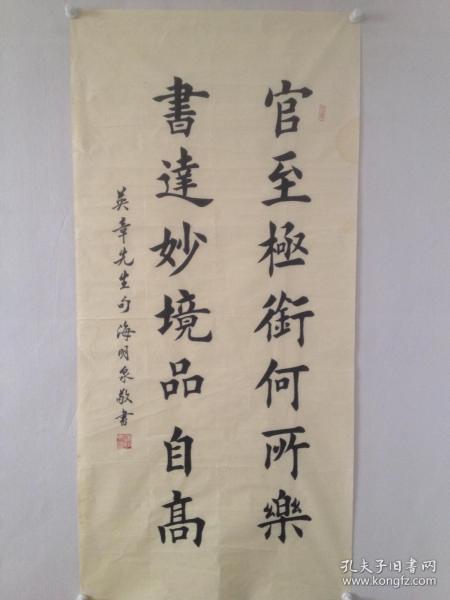 官至極銜何所樂
書達妙境品自高
英章先生句 海明泉敬書
孔夫子旧书网
www.kongfz.com